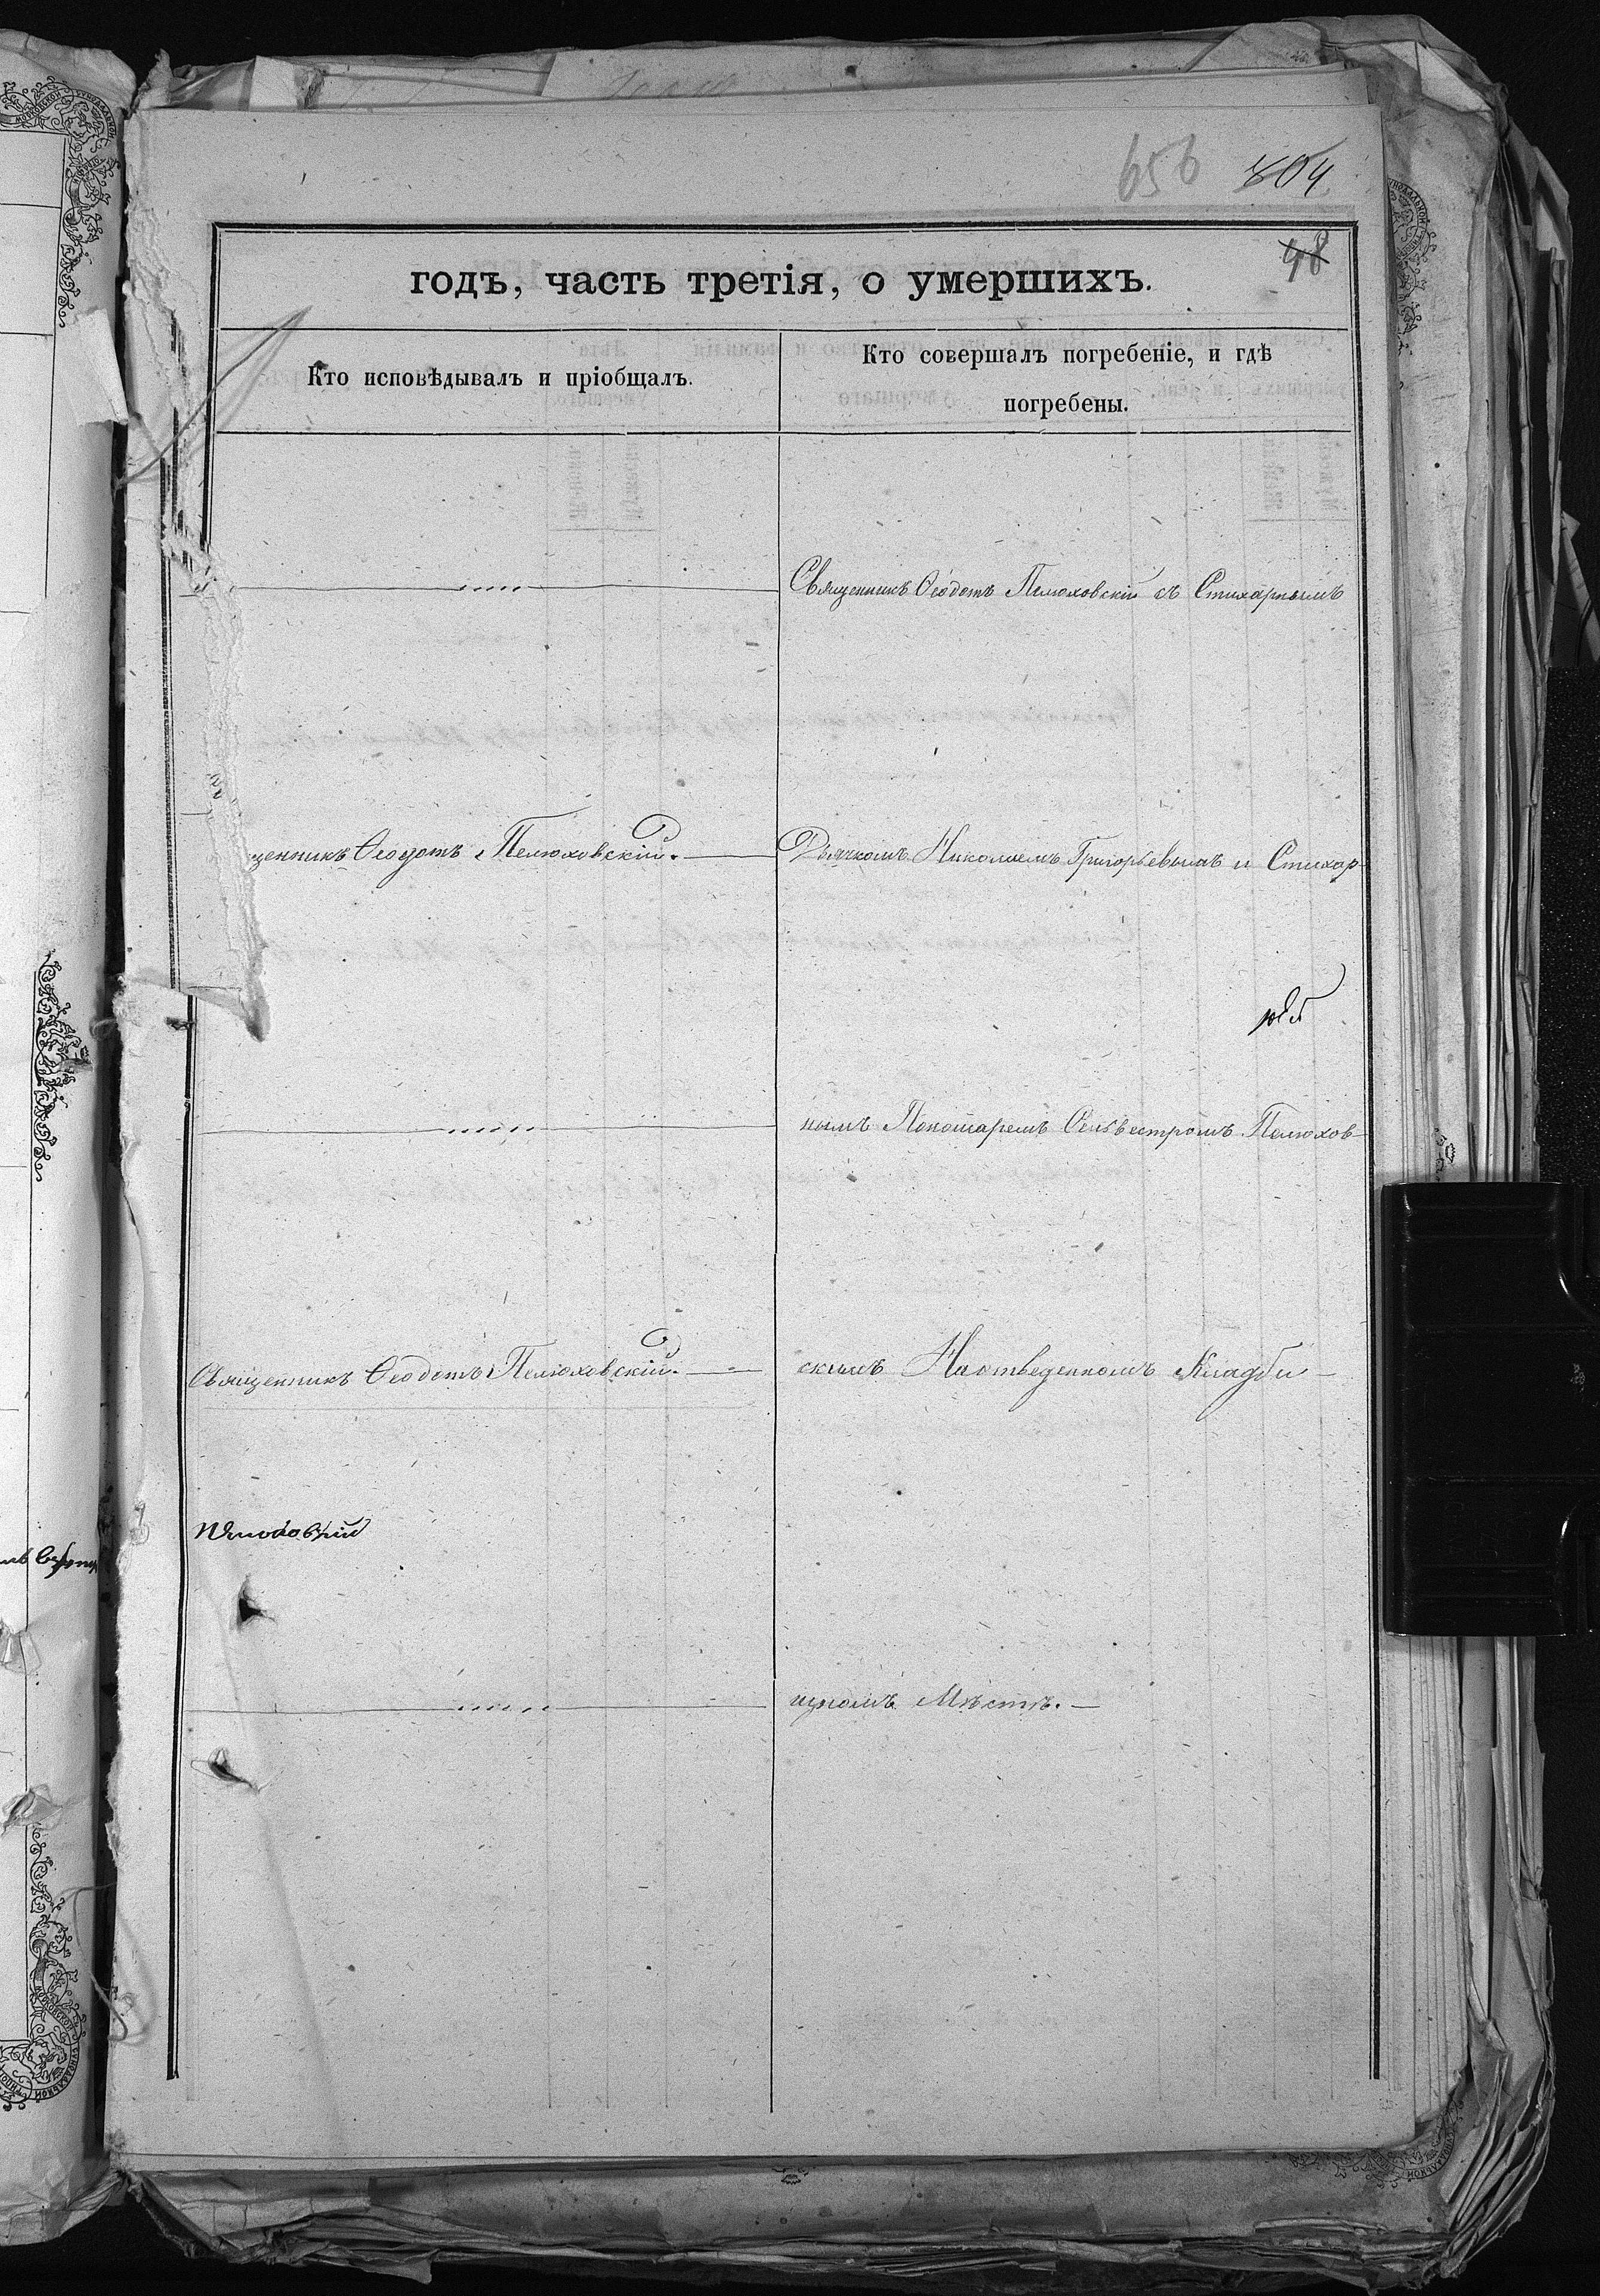 656 804
48
годъ, часть третія, о умершихъ.
Кто исповѣдывалъ и пріобщалъ.
Кто совершалъ погребеніе, и гдѣ
погребены.
Священникъ Ѳеодотъ Пелюховскій съ Стихарнымъ
щенникъ Ѳеодотъ Пелюховскій.
Дьячкомъ Николаемъ Григорьевымъ и Стихар-
нымъ Пономаремъ Сельвестромъ Пелюхов-
Священникъ Ѳеодотъ Пелюховскій.
скимъ На отведенномъ Кладби-
щномъ Мѣстѣ.